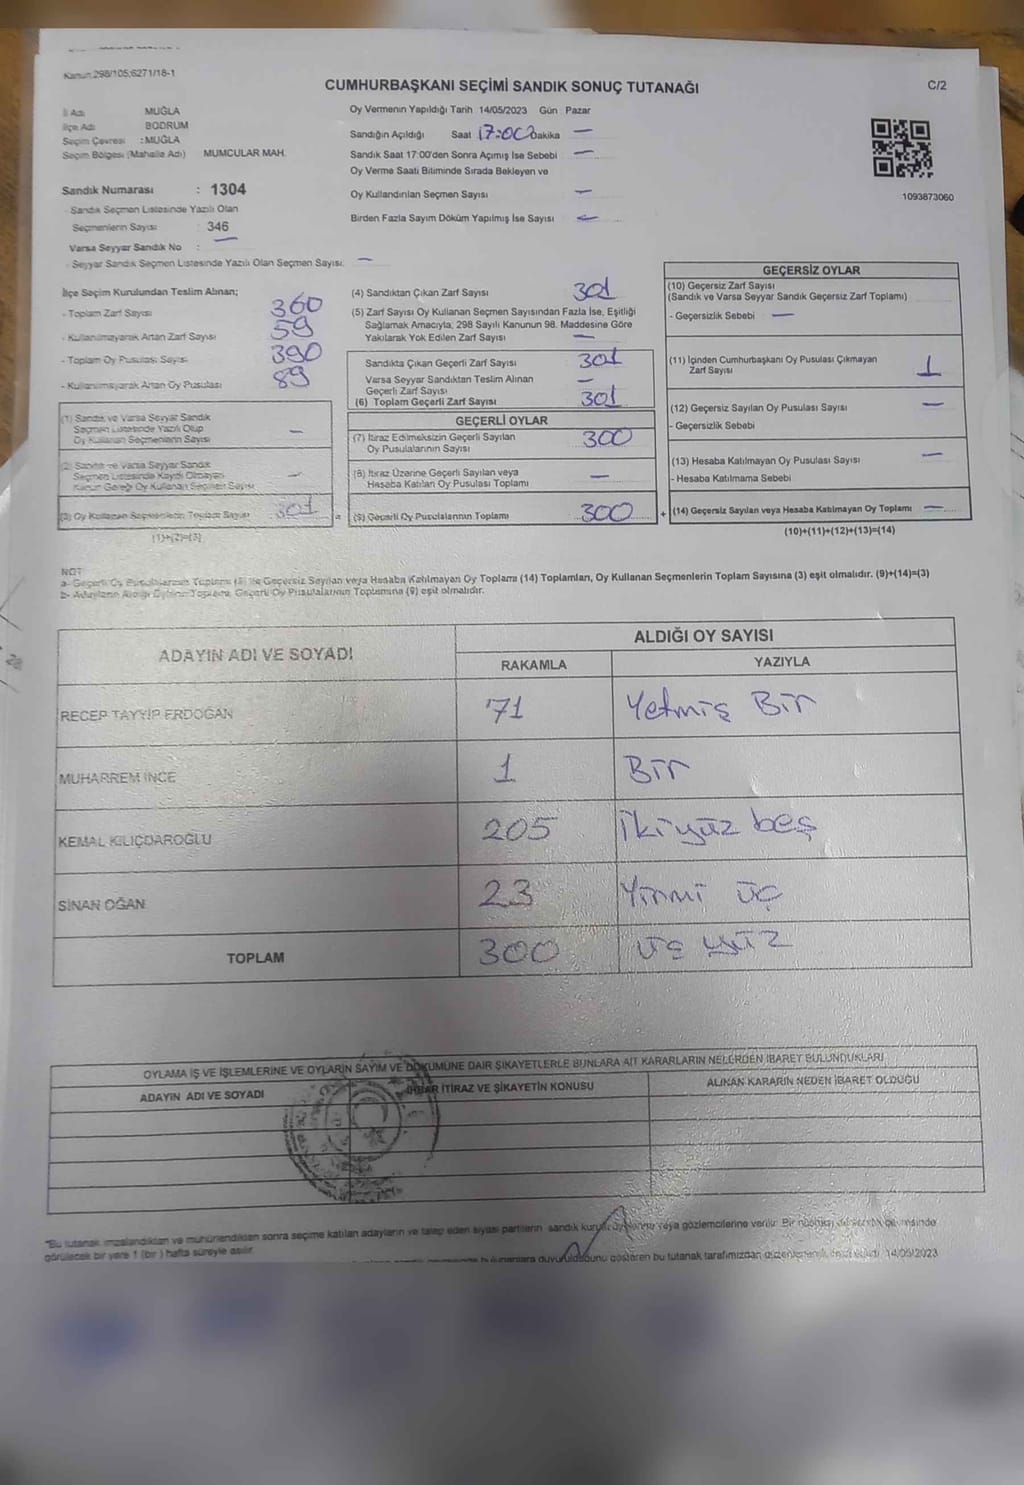 Kanun 298/105;6271/18-1
CUMHURBAŞKANI SEÇİMİ SANDIK SONUÇ TUTANAĞI
C/2
İl Adı MUĞLA
İlçe Adı BODRUM
Seçim Çevresi : MUĞLA
Seçim Bölgesi (Mahalle Adı) MUMCULAR MAH.
Oy Vermenin Yapıldığı Tarih 14/05/2023 Gün Pazar
Sandığın Açıldığı Saat 17:00 Dakika —
Sandık Saat 17:00'den Sonra Açımış İse Sebebi —
Oy Verme Saati Bitiminde Sırada Bekleyen ve
Oy Kullandırılan Seçmen Sayısı —
Birden Fazla Sayım Döküm Yapılmış İse Sayısı —
1093873060
Sandık Numarası : 1304
- Sandık Seçmen Listesinde Yazılı Olan
Seçmenlerin Sayısı : 346
Varsa Seyyar Sandık No : —
- Seyyar Sandık Seçmen Listesinde Yazılı Olan Seçmen Sayısı: —
İlçe Seçim Kurulundan Teslim Alınan;
- Toplam Zarf Sayısı 360
- Kullanılmayarak Artan Zarf Sayısı 59
- Toplam Oy Pusulası Sayısı 390
- Kullanılmayarak Artan Oy Pusulası 89
(1) Sandık ve Varsa Seyyar Sandık
Seçmen Listesinde Yazılı Olup
Oy Kullanan Seçmenlerin Sayısı —
(2) Sandık ve Varsa Seyyar Sandık
Seçmen Listesinde Kaydı Olmayan
Kanun Gereği Oy Kullanan Seçmen Sayısı —
(3) Oy Kullanan Seçmenlerin Toplam Sayısı 301
(1)+(2)=(3)
(4) Sandıktan Çıkan Zarf Sayısı 301
(5) Zarf Sayısı Oy Kullanan Seçmen Sayısından Fazla İse, Eşitliği
Sağlamak Amacıyla, 298 Sayılı Kanunun 98. Maddesine Göre
Yakılarak Yok Edilen Zarf Sayısı —
Sandıkta Çıkan Geçerli Zarf Sayısı 301
Varsa Seyyar Sandıktan Teslim Alınan
Geçerli Zarf Sayısı —
(6) Toplam Geçerli Zarf Sayısı 301
GEÇERLİ OYLAR
(7) İtiraz Edilmeksizin Geçerli Sayılan
Oy Pusulalarının Sayısı 300
(8) İtiraz Üzerine Geçerli Sayılan veya
Hesaba Katılan Oy Pusulası Toplamı —
= (9) Geçerli Oy Pusulalarının Toplamı 300
GEÇERSİZ OYLAR
(10) Geçersiz Zarf Sayısı
(Sandık ve Varsa Seyyar Sandık Geçersiz Zarf Toplamı)
- Geçersizlik Sebebi —
(11) İçinden Cumhurbaşkanı Oy Pusulası Çıkmayan
Zarf Sayısı 1
(12) Geçersiz Sayılan Oy Pusulası Sayısı —
- Geçersizlik Sebebi
(13) Hesaba Katılmayan Oy Pusulası Sayısı —
- Hesaba Katılmama Sebebi
+ (14) Geçersiz Sayılan veya Hesaba Katılmayan Oy Toplamı —
(10)+(11)+(12)+(13)=(14)
NOT
a- Geçerli Oy Pusulalarının Toplamı (9) ile Geçersiz Sayılan veya Hesaba Katılmayan Oy Toplamı (14) Toplamları, Oy Kullanan Seçmenlerin Toplam Sayısına (3) eşit olmalıdır. (9)+(14)=(3)
b- Adayların Aldığı Oyların Toplamı, Geçerli Oy Pusulalarının Toplamına (9) eşit olmalıdır.
ADAYIN ADI VE SOYADI
ALDIĞI OY SAYISI
RAKAMLA YAZIYLA
RECEP TAYYİP ERDOĞAN 71 Yetmiş Bir
MUHARREM İNCE 1 Bir
KEMAL KILIÇDAROĞLU 205 İkiyüz beş
SİNAN OĞAN 23 Yirmi üç
TOPLAM 300 üç yüz
OYLAMA İŞ VE İŞLEMLERİNE VE OYLARIN SAYIM VE DÖKÜMÜNE DAİR ŞİKAYETLERLE BUNLARA AİT KARARLARIN NELERDEN İBARET BULUNDUKLARI
ADAYIN ADI VE SOYADI İTİRAZ VE ŞİKAYETİN KONUSU ALINAN KARARIN NEDEN İBARET OLDUĞU
"Bu tutanak imzalandıktan ve mühürlendikten sonra seçime katılan adayların ve talep eden siyasi partilerin sandık kurulu üyelerine veya gözlemcilerine verilir. Bir nüshası da sandık çevresinde
görülecek bir yere 1 (bir) hafta süreyle asılır.
bulunanlara duyurulduğunu gösteren bu tutanak tarafımızdan düzenlenerek 14/05/2023